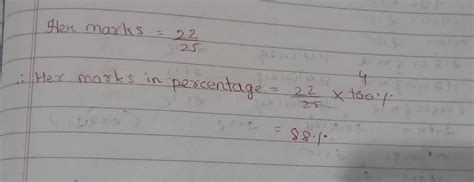 Her marks = 22/25
∴ Her marks in percentage = 22/25 × 100% 4
= 88%.